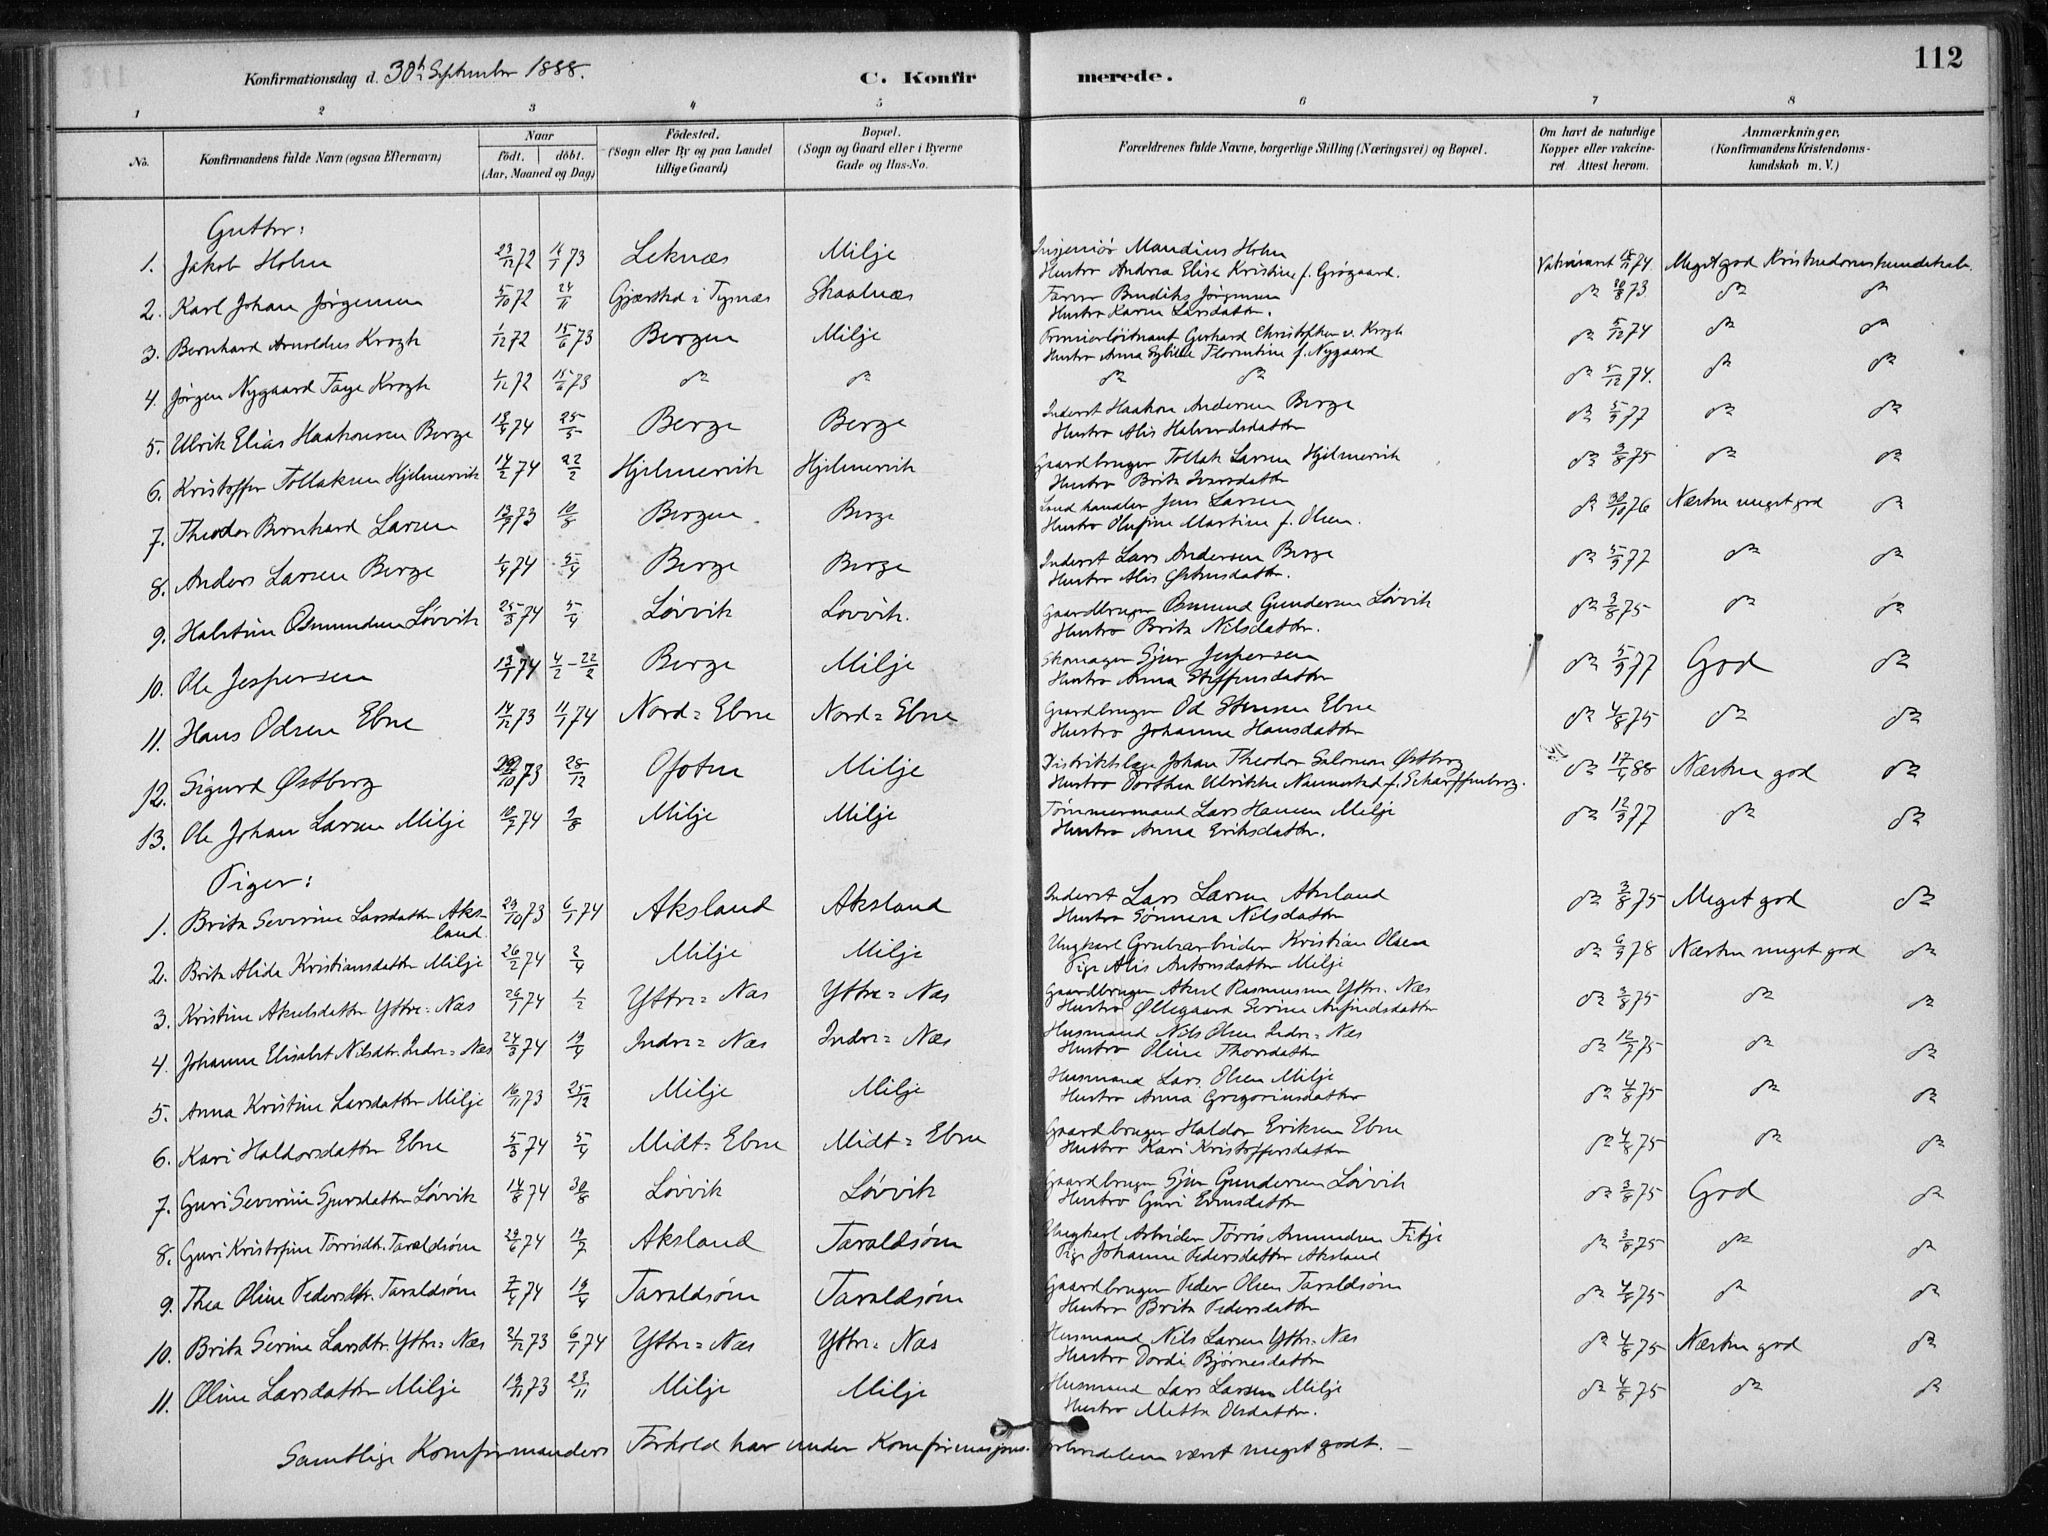 112
Konfirmationsdag d. 30te September 1888.
C. Konfirmerede.
1 2 3 4 5 6 7 8
No.
Konfirmandens fulde Navn (ogsaa Efternavn)
Naar
födt. döbt.
(Aar, Maaned og Dag)
Födested.
(Sogn eller By og paa Landet
tillige Gaard)
Bopæl.
(Sogn og Gaard eller i Byerne
Gade og Hus-No.
Forældrenes fulde Navne, borgerlige Stilling (Næringsvei) og Bopæl.
Om havt de naturlige
Kopper eller vakcine-
ret. Attest herom.
Anmærkninger.
(Konfirmandens Kristendoms-
kundskab m. V.)
Gutter:
1. Jakob Holm 23/12 72 11/1 73 Leknæs Milje Ingeniør Mandius Holm
Hustro Andrea Elise Kristine f. Grøgaard. Meget god Kristendomskundskab
2. Karl Johan Jørgensen 5/10 72 24/11 Gjærstad i Tysnæs Skaalnæs Farver Bendiks Jørgensen do 30/8 73 do do
Hustro Karen Larsdatter.
3. Bernhard Arnoldus Krogh 1/12 72 15/6 73 Bergen Milje Premierløitnant Gerhard Christopher v. Krogh do 5/12 74 do do
Hustro Anna Sybille Florentine f. Nygaard
4. Jørgen Nygaard Faye Krogh 1/12 72 15/6 73 do do do do do 5/12 74. do do
5. Ulrik Elias Haakonsen Berge 74 25/5 Berge Berge Inderst Haakon Andersen Berge do 5/9 77 do do
Hustro Alis Halvordsdatter
6. Kristoffer Tollaksen Hjelmervik 14/2 74 22/2 Hjelmervik Hjelmervik Gaardbruger Tollak Larsen Hjelmervik do 3/8 75 do do
Hustro Brita Ivarsdatter
7. Theodor Bernhard Larsen 73 10/8 Bergen Berge Landhandler Jens Larsen do 30/10 76 Næsten meget god do
Hustro Olufine Martine f. Olsen.
8. Anders Larsen Berge 1/4 74 5/4 Berge Berge Inderst Lars Andersen Berge do 5/9 77 do do
Hustro Alis Østensdatter.
9. Halstein Osmundsen Løvvik 25/3 74 5/4 Løvvik Løvvik. Gaardbruger Osmund Gundersen Løvvik do 3/8 75 do do
Hustro Brita Nilsdatter.
10. Ole Jespersen 13/1 74 4/2 - 22/2 Berge Milje Skomager Sjur Jespersen do 5/9 77 God do
Hustro Anna Steffensdatter
11. Hans Odsen Ebne 14/12 73 11/1 74 Nord=Ebne Nord=Ebne Gaardbruger Od Stensen Ebne do 4/8 75 do do
Hustro Johanne Hansdatter
12. Sigurd Østberg 73 28/12 Ofoten Milje Distriktslæge Johan Theodor Salomon Østberg do 17/4 88 Næsten god do
Hustro Dorthea Ulrikke Naumestad f. Scharffenberg.
13. Ole Johan Larsen Milje 10/7 74 9/8 Milje Milje Tømmermand Lars Hansen Milje do 12/9 77 do do
Hustro Anna Eriksdatter.
Piger:
1. Brita Severine Larsdatter Aks- 29/10 73 6/1 74 Aksland Aksland Inderst Lars Larsen Aksland do 3/8 75 Meget god do
land. Hustro Sønneva Nilsdatter
2. Brita Alida Kristiansdatter Milje 26/2 74 2/4 Milje Milje Ungkarl Grubearbeider Kristian Olsen do 6/9 78 Næsten meget god do
Pige Alis Antonsdatter Milje
3. Kristine Akselsdatter Yttre=Næs 26/1 74 1/2 Yttre=Næs Yttre=Næs Gaardbruger Aksel Rasmussen Yttre=Næs do 3/8 75 do do
Hustro Øllegaard Serine Arnfinsdatter
4. Johanne Elisabet Nilsdtr. Indre=Næs 24/3 74 19/4 Indre=Næs Indre=Næs Husmand Nils Olsen Indre=Næs do 12/7 75 do do
Hustro Oline Thorsdatter
5. Anna Kristine Larsdatter Milje 16/11 73 25/12 Milje Milje Husmand Lars Olsen Milje do 4/8 75 do do
Hustro Anna Gregoriusdatter
6. Kari Haldorsdatter Ebne 5/3 74 5/4 Midt=Ebne Midt=Ebne Gaardbruger Haldor Eriksen Ebne do 4/8 75 do do
Hustro Kari Kristoffersdatter
7. Guri Severine Sjursdatter Løvvik 14/8 74 30/8 Løvvik Løvvik Gaardbruger Sjur Gundersen Løvvik do 3/8 75 God do
Hustro Guri Evensdatter
8. Guri Kristofine Torrisdtr. Taraldsøen 29/6 74 19/7 Aksland Taraldsøen Ungkarl Arbeider Torris Amundsen Fitje do 3/8 75 do do
Pige Johanne Pedersdatter Aksland
9. Thea Oline Pedersdtr. Taraldsøen 7/4 74 19/4 Taraldsøen Taraldsøen Gaardbruger Peder Olsen Taraldsøen do 4/8 75 do do
Hustro Brita Pedersdatter
10. Brita Serine Larsdtr. Yttre=Næs 21/12 73 6/1 74 Yttre=Næs Yttre=Næs Husmand Nils Larsen Yttre=Næs do 4/8 75 Næsten god do
Hustro Dordi Bjørnesdatter
11. Oline Larsdatter Milje 19/11 73 23/11 Milje Milje Husmand Lars Larsen Milje do 4/8 75 do do
Hustro Metta Olsdatter.
Samtlige Konfirmanders Forhold har under Konfirmasjons-forberedelsen været meget godt. —